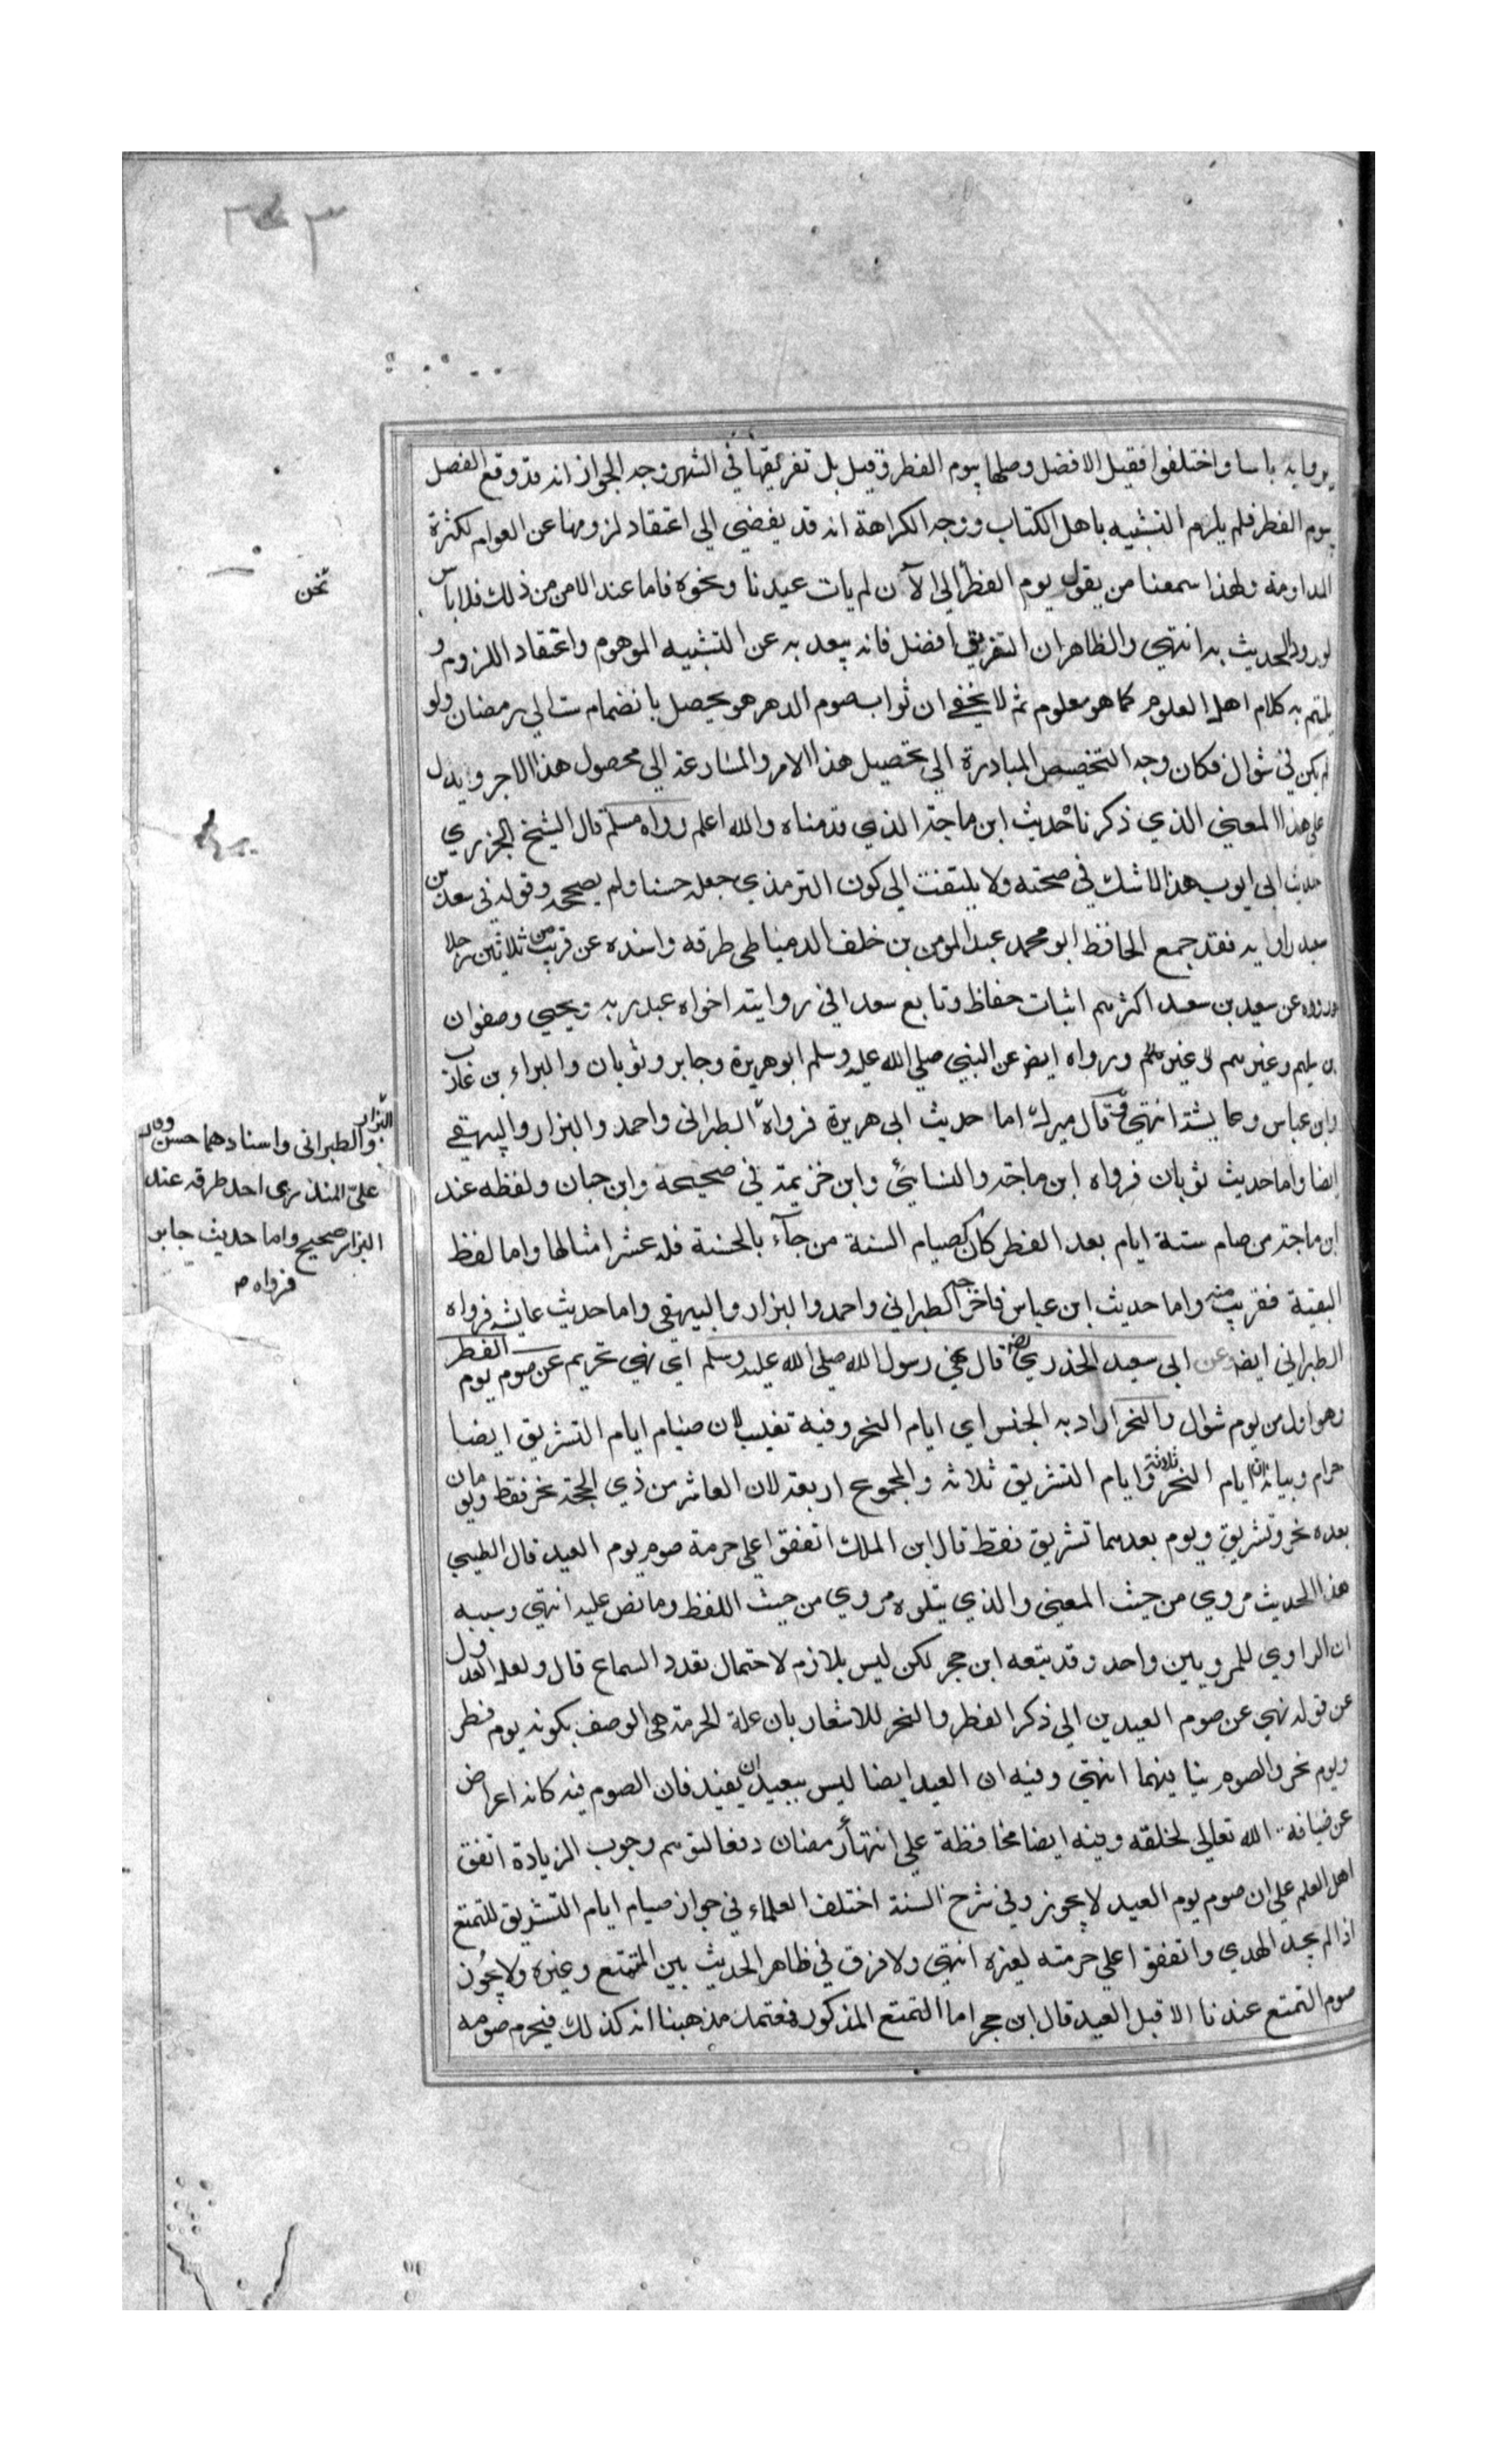 ٣٤٣
يروا به باسا واختلفوا فقيل الافضل وصلها بيوم الفطر وقيل بل تفريقها في الشهر وجه الجواز انه قد وقع الفصل
بيوم الفطر فلم يلزم التشبيه باهل الكتاب ووجه الكراهة انه قد يفضي الى اعتقاد لزومها عن العوام لكثرة
المداومة ولهذا سمعنا من يقول يوم الفطر الى الآن لم يات عيدنا ونحوه فاما عند الامن من ذلك فلا باس
نحن
لورود الحديث به انتهي والظاهر ان التفريق افضل فانه يبعد به عن التشبيه الموهوم واعتقاد اللزوم و
يلتم به كلام اهل العلوم كما هو معلوم ثم لا يخفي ان ثواب صوم الدهر هو يحصل بانضمام ست الى رمضان ولو
لم يكن في شوال فكان وجه التخصيص المبادرة الى تحصيل هذا الامر والمسارعة الى محصول هذا الاجر ويدل
على هذا المعني الذي ذكرنا حديث ابن ماجة الذي قدمناه والله اعلم رواه مسلم قال الشيخ الجزري
حديث ابي ايوب هذا لا شك في صحته ولا يلتفت الى كون الترمذي جعله حسنا ولم يصححه وقوله في سعد بن
سعيد راويه فقد جمع الحافظ ابو محمد عبد المومن بن خلف الدمياطي طرقه واسنده عن قريب من ثلاثين رجلا
رووه عن سعيد بن سعيد اكثرهم اثبات حفاظ وتابع سعدا في روايته اخواه عبد ربه ويحيي وصفوان
بن سليم وغيرهم ورواه ايضا عن النبي صلى الله عليه وسلم ابو هريرة وجابر وثوبان والبراء بن عازب
وابن عباس وعايشة انتهي قال ميرك اما حديث ابي هريرة فرواه الطبراني واحمد والبزار والبيهقي
البزار والطبراني واسنادهما حسن وقال
على المنذري احد طرقه عند
البزار صحيح واما حديث جابر
فرواه م
ايضا واما حديث ثوبان فرواه ابن ماجة والنسائي وابن خزيمة في صحيحه وابن حبان ولفظه عند
ابن ماجة من صام ستة ايام بعد الفطر كان كصيام السنة من جآء بالحسنة فله عشر امثالها واما لفظ
البقية فقريب منه واما حديث ابن عباس فاخرجه الطبراني واحمد والبزار والبيهقي واما حديث عايشة فرواه
الطبراني ايضا وعن ابي سعيد الخدري رضي قال نهي رسول الله صلى الله عليه وسلم اي نهي تحريم عن صوم يوم الفطر
وهو اول من يوم شوال والنحر اراد به الجنس اي ايام النحر وفيه تغليب لان صيام ايام التشريق ايضا
حرام وبيانه ان ايام النحر ثلاثة وايام التشريق ثلاثة والمجموع اربعة لان العاشر من ذي الحجة نحر فقط ويومان
بعده نحر وتشريق ويوم بعدهما تشريق فقط قال ابن الملك اتفقوا على حرمة صوم يوم العيد قال الطيبي
هذا الحديث مروي من حيث المعني والذي يتلوه مروي من حيث اللفظ وما نص عليه انتهي وسببه
ان الراوي للمرويين واحد وقد تبعه ابن حجر لكن ليس بلازم لاحتمال تعدد السماع قال ولعل العدول
عن قوله نهي عن صوم العيدين الى ذكر الفطر والنحر للاشعار بان علة الحرمة هي الوصف بكونه يوم فطر
ويوم نحر والصوم ينافيهما انتهي وفيه ان العيد ايضا ليس ببعيد ان يفيد فان الصوم فيه كانه اعراض
عن ضيافة الله تعالى لخلقه وفيه ايضا محافظة على انتهآء رمضان دفعا لتوهم وجوب الزيادة اتفق
اهل العلم على ان صوم يوم العيد لا يجوز وفي شرح السنة اختلف العلماء في جواز صيام ايام التشريق للمتمتع
اذا لم يجد الهدي واتفقوا على حرمته لغيره انتهي ولا فرق في ظاهر الحديث بين المتمتع وغيره ولا يجوز
صوم التمتع عندنا الا قبل العيد قال ابن حجر اما التمتع المذكور فمعتمد مذهبنا انه كذلك فيحرم صومه